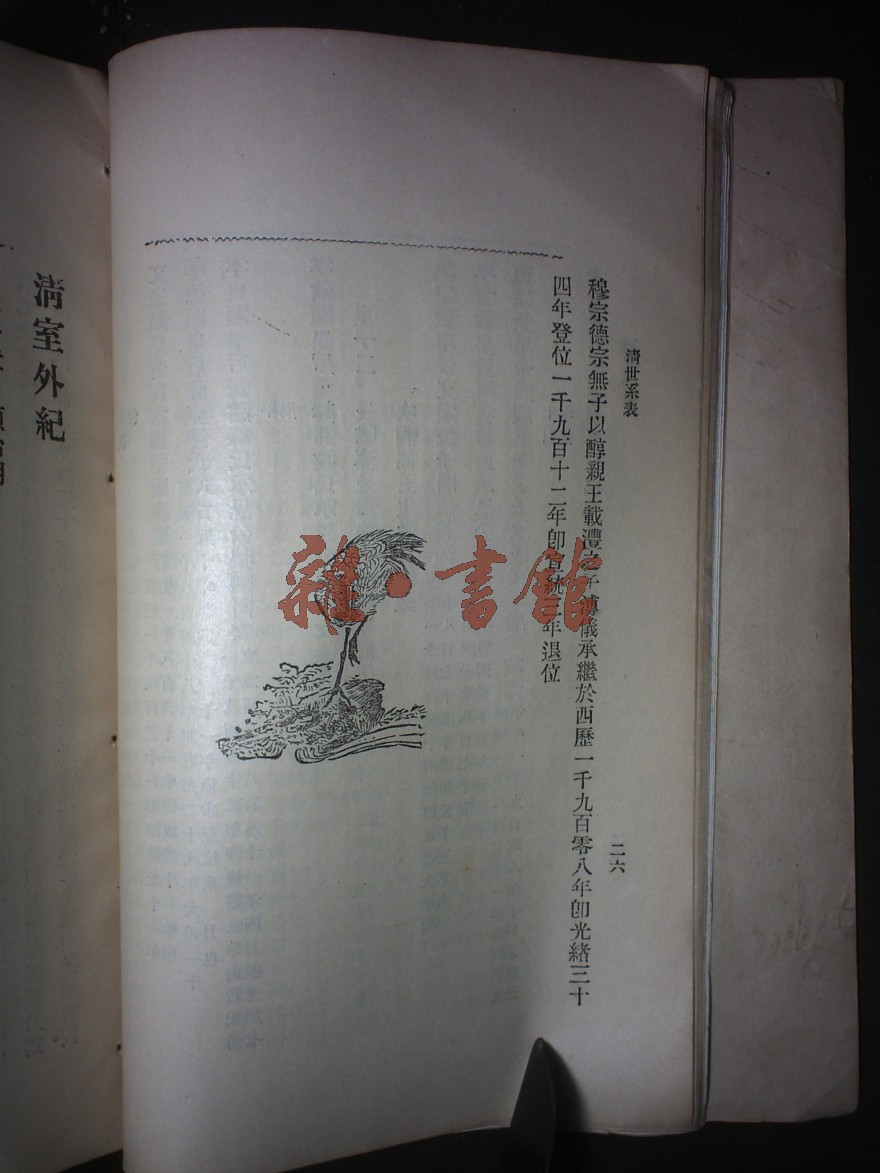 清世系表
二六
穆宗德宗無子以醇親王載灃之子溥儀承繼於西歷一千九百零八年卽光緒三十
四年登位一千九百十二年卽宣統三年退位
雜·書館
清室外紀